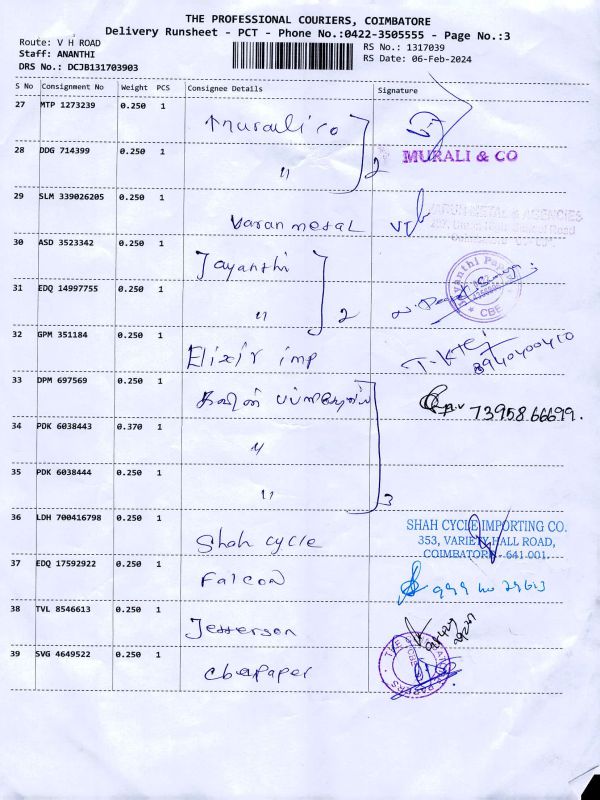 THE PROFESSIONAL COURIERS, COIMBATORE
Delivery Runsheet - PCT - Phone No.:0422-3505555 - Page No.:3
Route: V H ROAD
RS No.: 1317039
Staff: ANANTHI
RS Date: 06-Feb-2024
DRS No.: DCJB131703903
S No Consignment No Weight PCS Consignee Details Signature
27 MTP 1273239 0.250 1 Murali co
28 DDG 714399 0.250 1 " 2 MURALI & CO
29 SLM 339026205 0.250 1 Varan metal VARUN METAL & AGENCIES
30 ASD 3523342 0.250 1 Jayanthi
31 EDQ 14997755 0.250 1 " 2 CBE
32 GPM 351184 0.250 1 Elixir imp 8940400410
33 DPM 697569 0.250 1 73958 66699.
34 PDK 6038443 0.370 1 "
35 PDK 6038444 0.250 1 " 3
36 LDH 700416798 0.250 1 Shah cycle SHAH CYCLE IMPORTING CO.
353, VARIETY HALL ROAD,
COIMBATORE - 641 001.
37 EDQ 17592922 0.250 1 Falcon
38 TVL 8546613 0.250 1 Jefferson
39 SVG 4649522 0.250 1 Cbe Paper